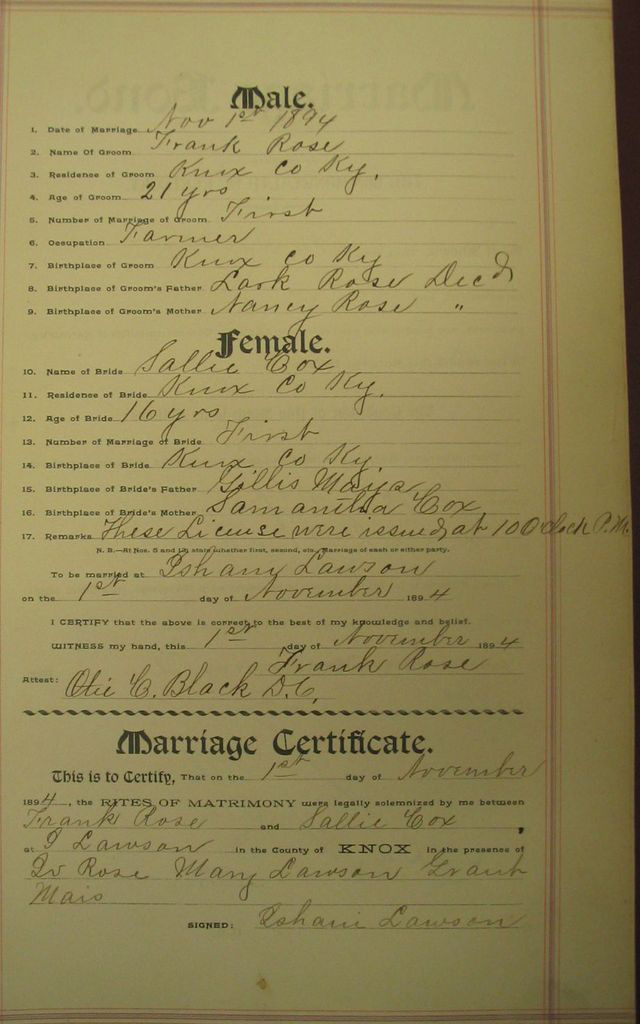 Male.
1. Date of Marriage Nov 1st 1894
2. Name Of Groom Frank Rose
3. Residence of Groom Knox Co Ky.
4. Age of Groom 21 yrs
5. Number of Marriage of Groom First
6. Occupation Farmer
7. Birthplace of Groom Knox Co Ky
8. Birthplace of Groom's Father Lark Rose Decd
9. Birthplace of Groom's Mother Nancy Rose "
Female.
10. Name of Bride Sallie Cox
11. Residence of Bride Knox Co Ky.
12. Age of Bride 16 yrs
13. Number of Marriage of Bride First
14. Birthplace of Bride Knox Co Ky
15. Birthplace of Bride's Father Gillis
16. Birthplace of Bride's Mother Samantha Cox
17. Remarks These License were issued at 10 O'clock P.M.
N. B.—At Nos. 5 and 13, state whether first, second, etc., Marriage of each or either party.
To be married at Lawson
on the 1st day of November 1894
I CERTIFY that the above is correct to the best of my knowledge and belief.
WITNESS my hand, this 1st day of November 1894
Frank Rose
Attest: Otie C. Black D.C.
Marriage Certificate.
This is to Certify, That on the 1st day of November
1894, the RITES OF MATRIMONY were legally solemnized by me between
Frank Rose and Sallie Cox,
at I Lawson in the County of KNOX in the presence of
Rose Mary Lawson Grant
Mais
SIGNED: Lawson